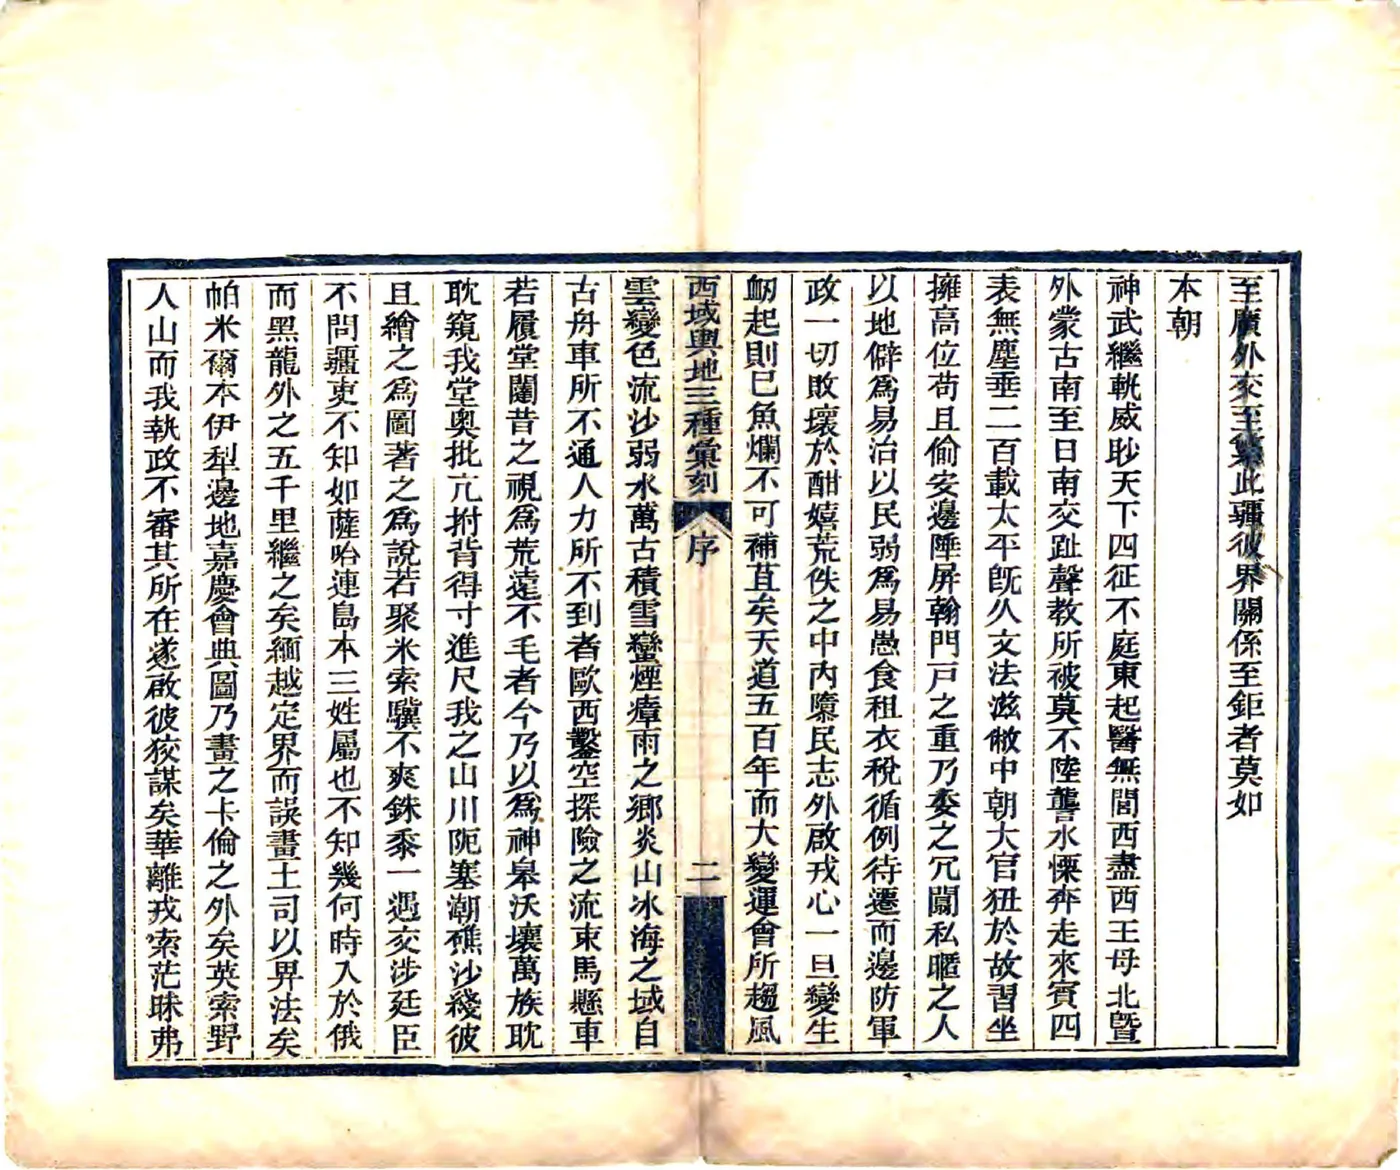 至廣外來至黨此疆彼界關係至鉅者莫如
本朝
神武繼軌威眇天下四征不庭東起醫無閭西盡西王母北曁
外蒙古南至日南交趾聲教所被莫不陸讋水慄奔走來賓四
表無塵垂二百載太平旣久文法滋敝中朝大官狃於故習坐
擁高位苟且偷安邊陲屏翰門戸之重乃委之冗闒私暱之人
以地僻爲易治以民弱爲易愚食租衣稅循例待遷而邊防軍
政一切敗壞於酣嬉荒佚之中内隳民志外啟戎心一旦變生
衂起則已魚爛不可補苴矣天道五百年而大變運會所趨風
西域輿地三種彙刻
序
二
雲變色流沙弱水萬古積雪蠻煙瘴雨之鄉炎山冰海之域自
古舟車所不通人力所不到者歐西鑿空探險之流束馬懸車
若履堂闥昔之視爲荒遠不毛者今乃以爲神皋沃壤萬族耽
耽窺我堂奥批亢拊背得寸進尺我之山川阨塞潮礁沙綫彼
且繪之爲圖著之爲說若聚米索驥不爽銖黍一遇交涉廷臣
不問疆吏不知如薩哈連島本三姓屬也不知幾何時入於俄
而黑龍外之五千里繼之矣緬越定界而誤畫土司以畀法矣
帕米爾本伊犁邊地嘉慶會典圖乃畫之卡倫之外矣英索野
人山而我執政不審其所在遂啟彼狡謀矣華離戎索茫昧弗